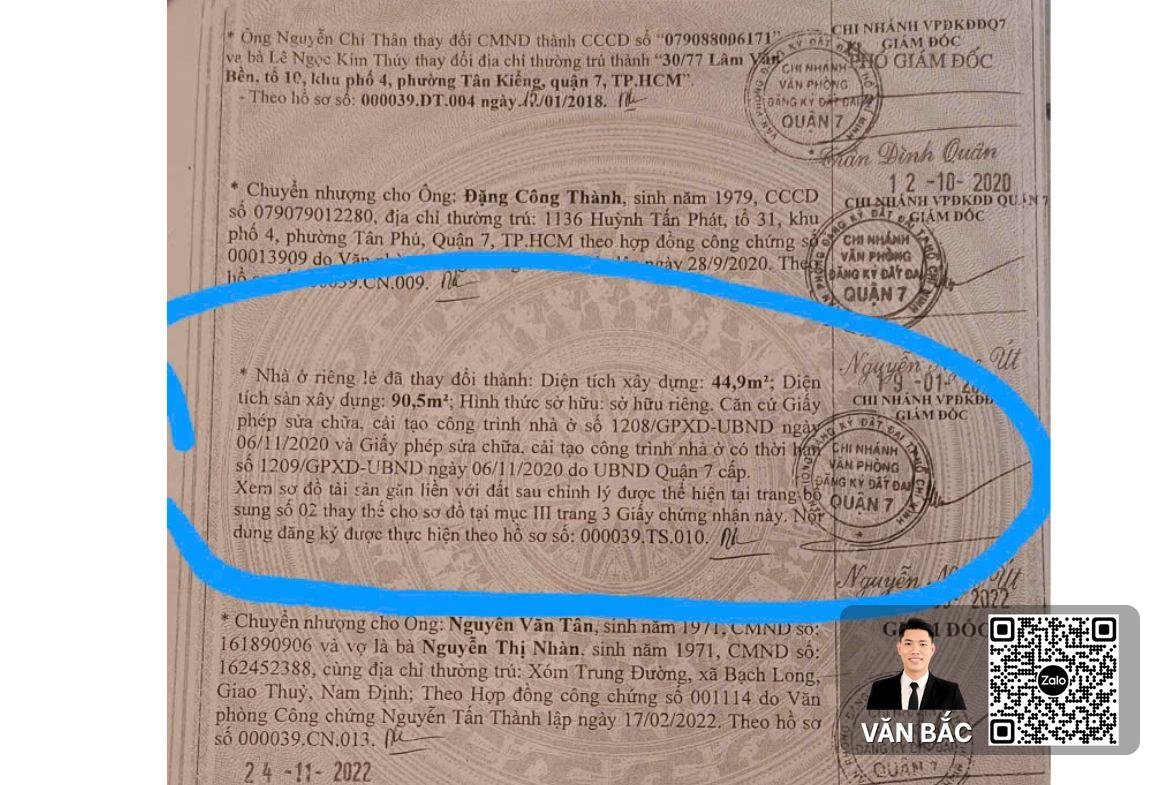 * Ông Nguyễn Chí Thân thay đổi CMND thành CCCD số "079088006171"
và bà Lê Ngọc Kim Thúy thay đổi địa chỉ thường trú thành "30/77 Lâm Văn
Bền, tổ 10, khu phố 4, phường Tân Kiểng, quận 7, TP.HCM".
- Theo hồ sơ số: 000039.DT.004 ngày 12/01/2018.
CHI NHÁNH VPĐKĐĐQ7
GIÁM ĐỐC
PHÓ GIÁM ĐỐC
CHI NHÁNH
VĂN PHÒNG
ĐĂNG KÝ ĐẤT ĐAI
QUẬN 7
Trần Đình Quân
12-10-2020
* Chuyển nhượng cho Ông: Đặng Công Thành, sinh năm 1979, CCCD
số 079079012280, địa chỉ thường trú: 1136 Huỳnh Tấn Phát, tổ 31, khu
phố 4, phường Tân Phú, Quận 7, TP.HCM theo hợp đồng công chứng số
00013909 do Văn ngày 28/9/2020. Theo
hồ 39.CN.009.
CHI NHÁNH VPĐKĐĐ QUẬN 7
GIÁM ĐỐC
CHI NHÁNH
VĂN PHÒNG
ĐĂNG KÝ ĐẤT ĐAI
QUẬN 7
Nguyễn Út
19-01-
* Nhà ở riêng lẻ đã thay đổi thành: Diện tích xây dựng: 44,9m²; Diện
tích sàn xây dựng: 90,5m²; Hình thức sở hữu: sở hữu riêng. Căn cứ Giấy
phép sửa chữa, cải tạo công trình nhà ở số 1208/GPXD-UBND ngày
06/11/2020 và Giấy phép sửa chữa, cải tạo công trình nhà ở có thời hạn
số 1209/GPXD-UBND ngày 06/11/2020 do UBND Quận 7 cấp.
Xem sơ đồ tài sản gắn liền với đất sau chỉnh lý được thể hiện tại trang bổ
sung số 02 thay thế cho sơ đồ tại mục III trang 3 Giấy chứng nhận này. Nội
dung đăng ký được thực hiện theo hồ sơ số: 000039.TS.010.
CHI NHÁNH VPĐKĐĐ
GIÁM ĐỐC
CHI NHÁNH
VĂN PHÒNG
ĐĂNG KÝ ĐẤT ĐAI
QUẬN 7
Nguyễn Út
2022
* Chuyển nhượng cho Ông: Nguyễn Văn Tân, sinh năm 1971, CMND số:
161890906 và vợ là bà Nguyễn Thị Nhàn, sinh năm 1971, CMND số:
162452388, cùng địa chỉ thường trú: Xóm Trung Đường, xã Bạch Long,
Giao Thuỷ, Nam Định; Theo Hợp đồng công chứng số 001114 do Văn
phòng Công chứng Nguyễn Tấn Thành lập ngày 17/02/2022. Theo hồ sơ
số 000039.CN.013.
GIÁM ĐỐC
Zalo
VĂN BẮC
ĐĂNG KÝ ĐẤT ĐAI
QUẬN 7
24-11-2022